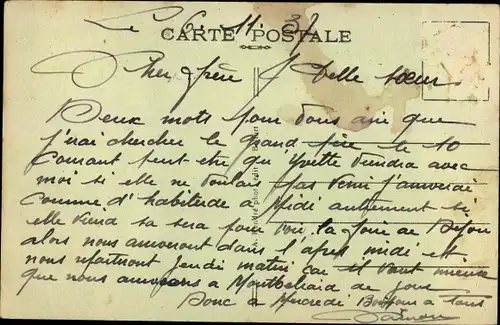 Le 6-11-37
CARTE POSTALE
Cher frère & belle sœur
Deux mots pour vous que
j'irai chercher le grand père le 10
Courant peut etre qu Yvette viendra avec
moi si elle ne voulais pas venir j'ariverai
Comme d'habitude a Midi autrement si
elle viend sa sera pour voir la foire de Dijon
alors nous ariveront dans l'apres midi et
nous Jeudi matin car il vaut mieux
que nous arivions a Montbeliard de jour
Donc a Mercredi a Tous